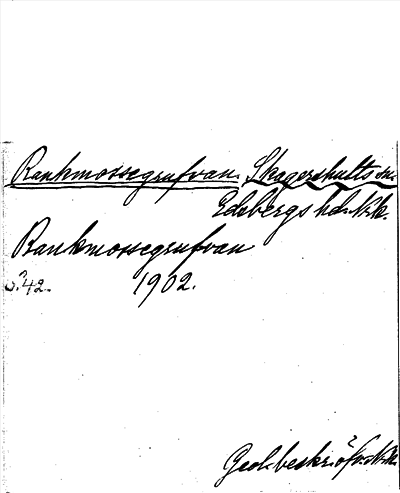 Rankmossegrufvan Skagershults sn.
Edsbergs hd. N.k.
Rankmossegrufvan
S. 42. 1902.
Geol. beskr. öfv. N.k.